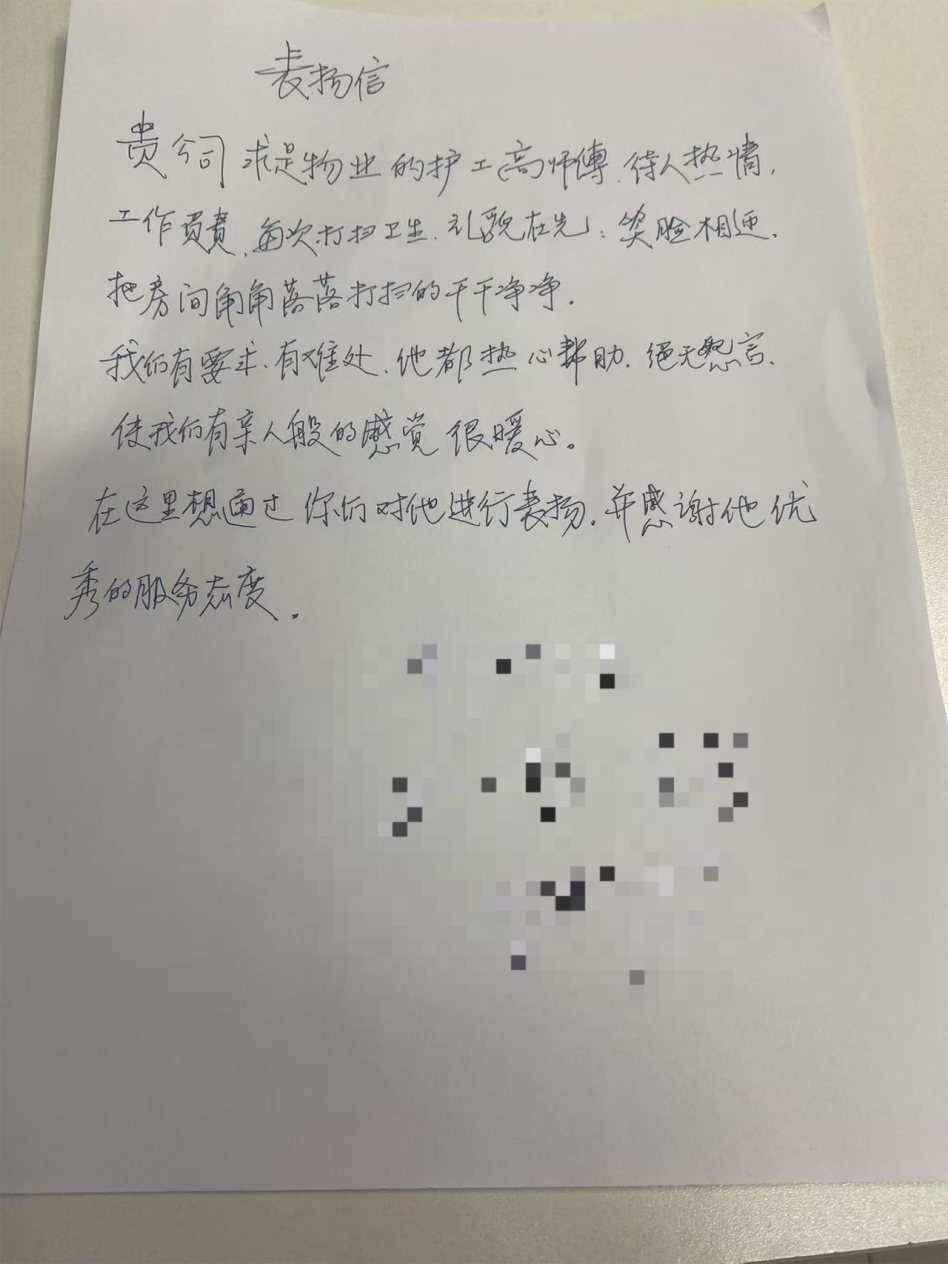 表扬信
贵公司求是物业的护工高师傅.待人热情,
工作负责,每次打扫卫生.礼貌在先;笑脸相迎.
把房间角角落落打扫的干干净净.
我们有要求.有难处.他都热心帮助.绝无怨言.
使我们有亲人般的感觉很暖心。
在这里想通过你们对他进行表扬.并感谢他优
秀的服务态度.